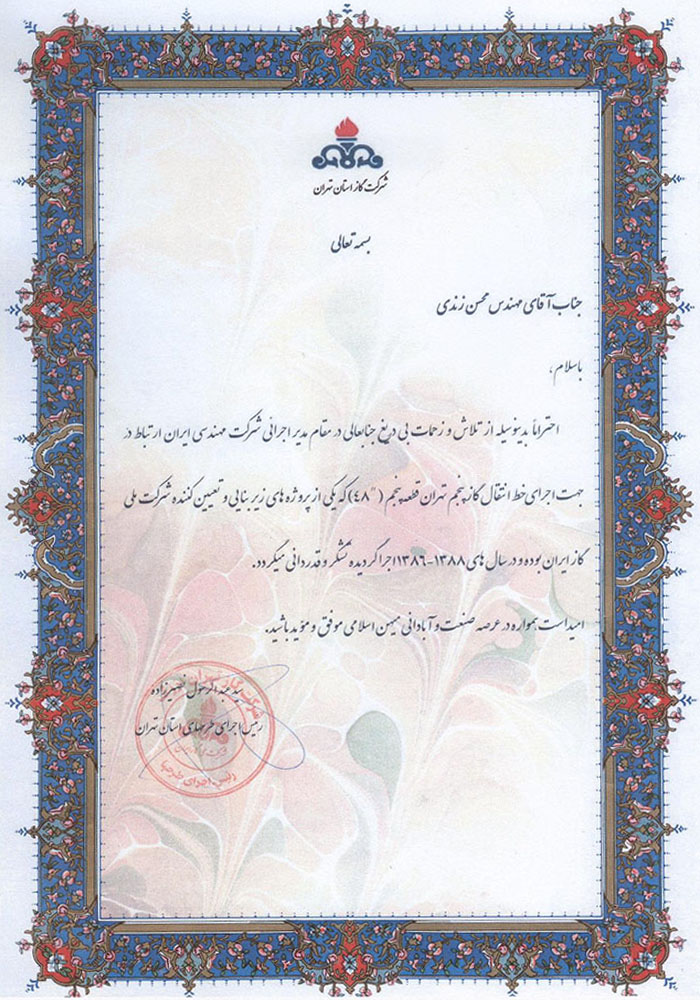 شرکت گاز استان تهران
بسمه تعالی
جناب آقای مهندس محسن زندی
باسلام ،
احتراماً بدینوسیله از تلاش و زحمات بی دریغ جنابعالی در مقام مدیر اجرائی شرکت مهندسی ایران ارتباط در
جهت اجرای خط انتقال گاز پنجم تهران قطعه پنجم ( ״٤٨) که یکی از پروژه های زیر بنایی و تعیین کننده شرکت ملی
گاز ایران بوده و در سال های ۱۳۸۸-۱۳۸٦ اجرا گردیده تشکر و قدردانی میگردد.
امید است همواره در عرصه صنعت و آبادانی میهن اسلامی موفق و مؤید باشید.
سید عبدالرسول نصیرزاده
رئیس اجرای طرحهای استان تهران
رئیس اجرای طرحها